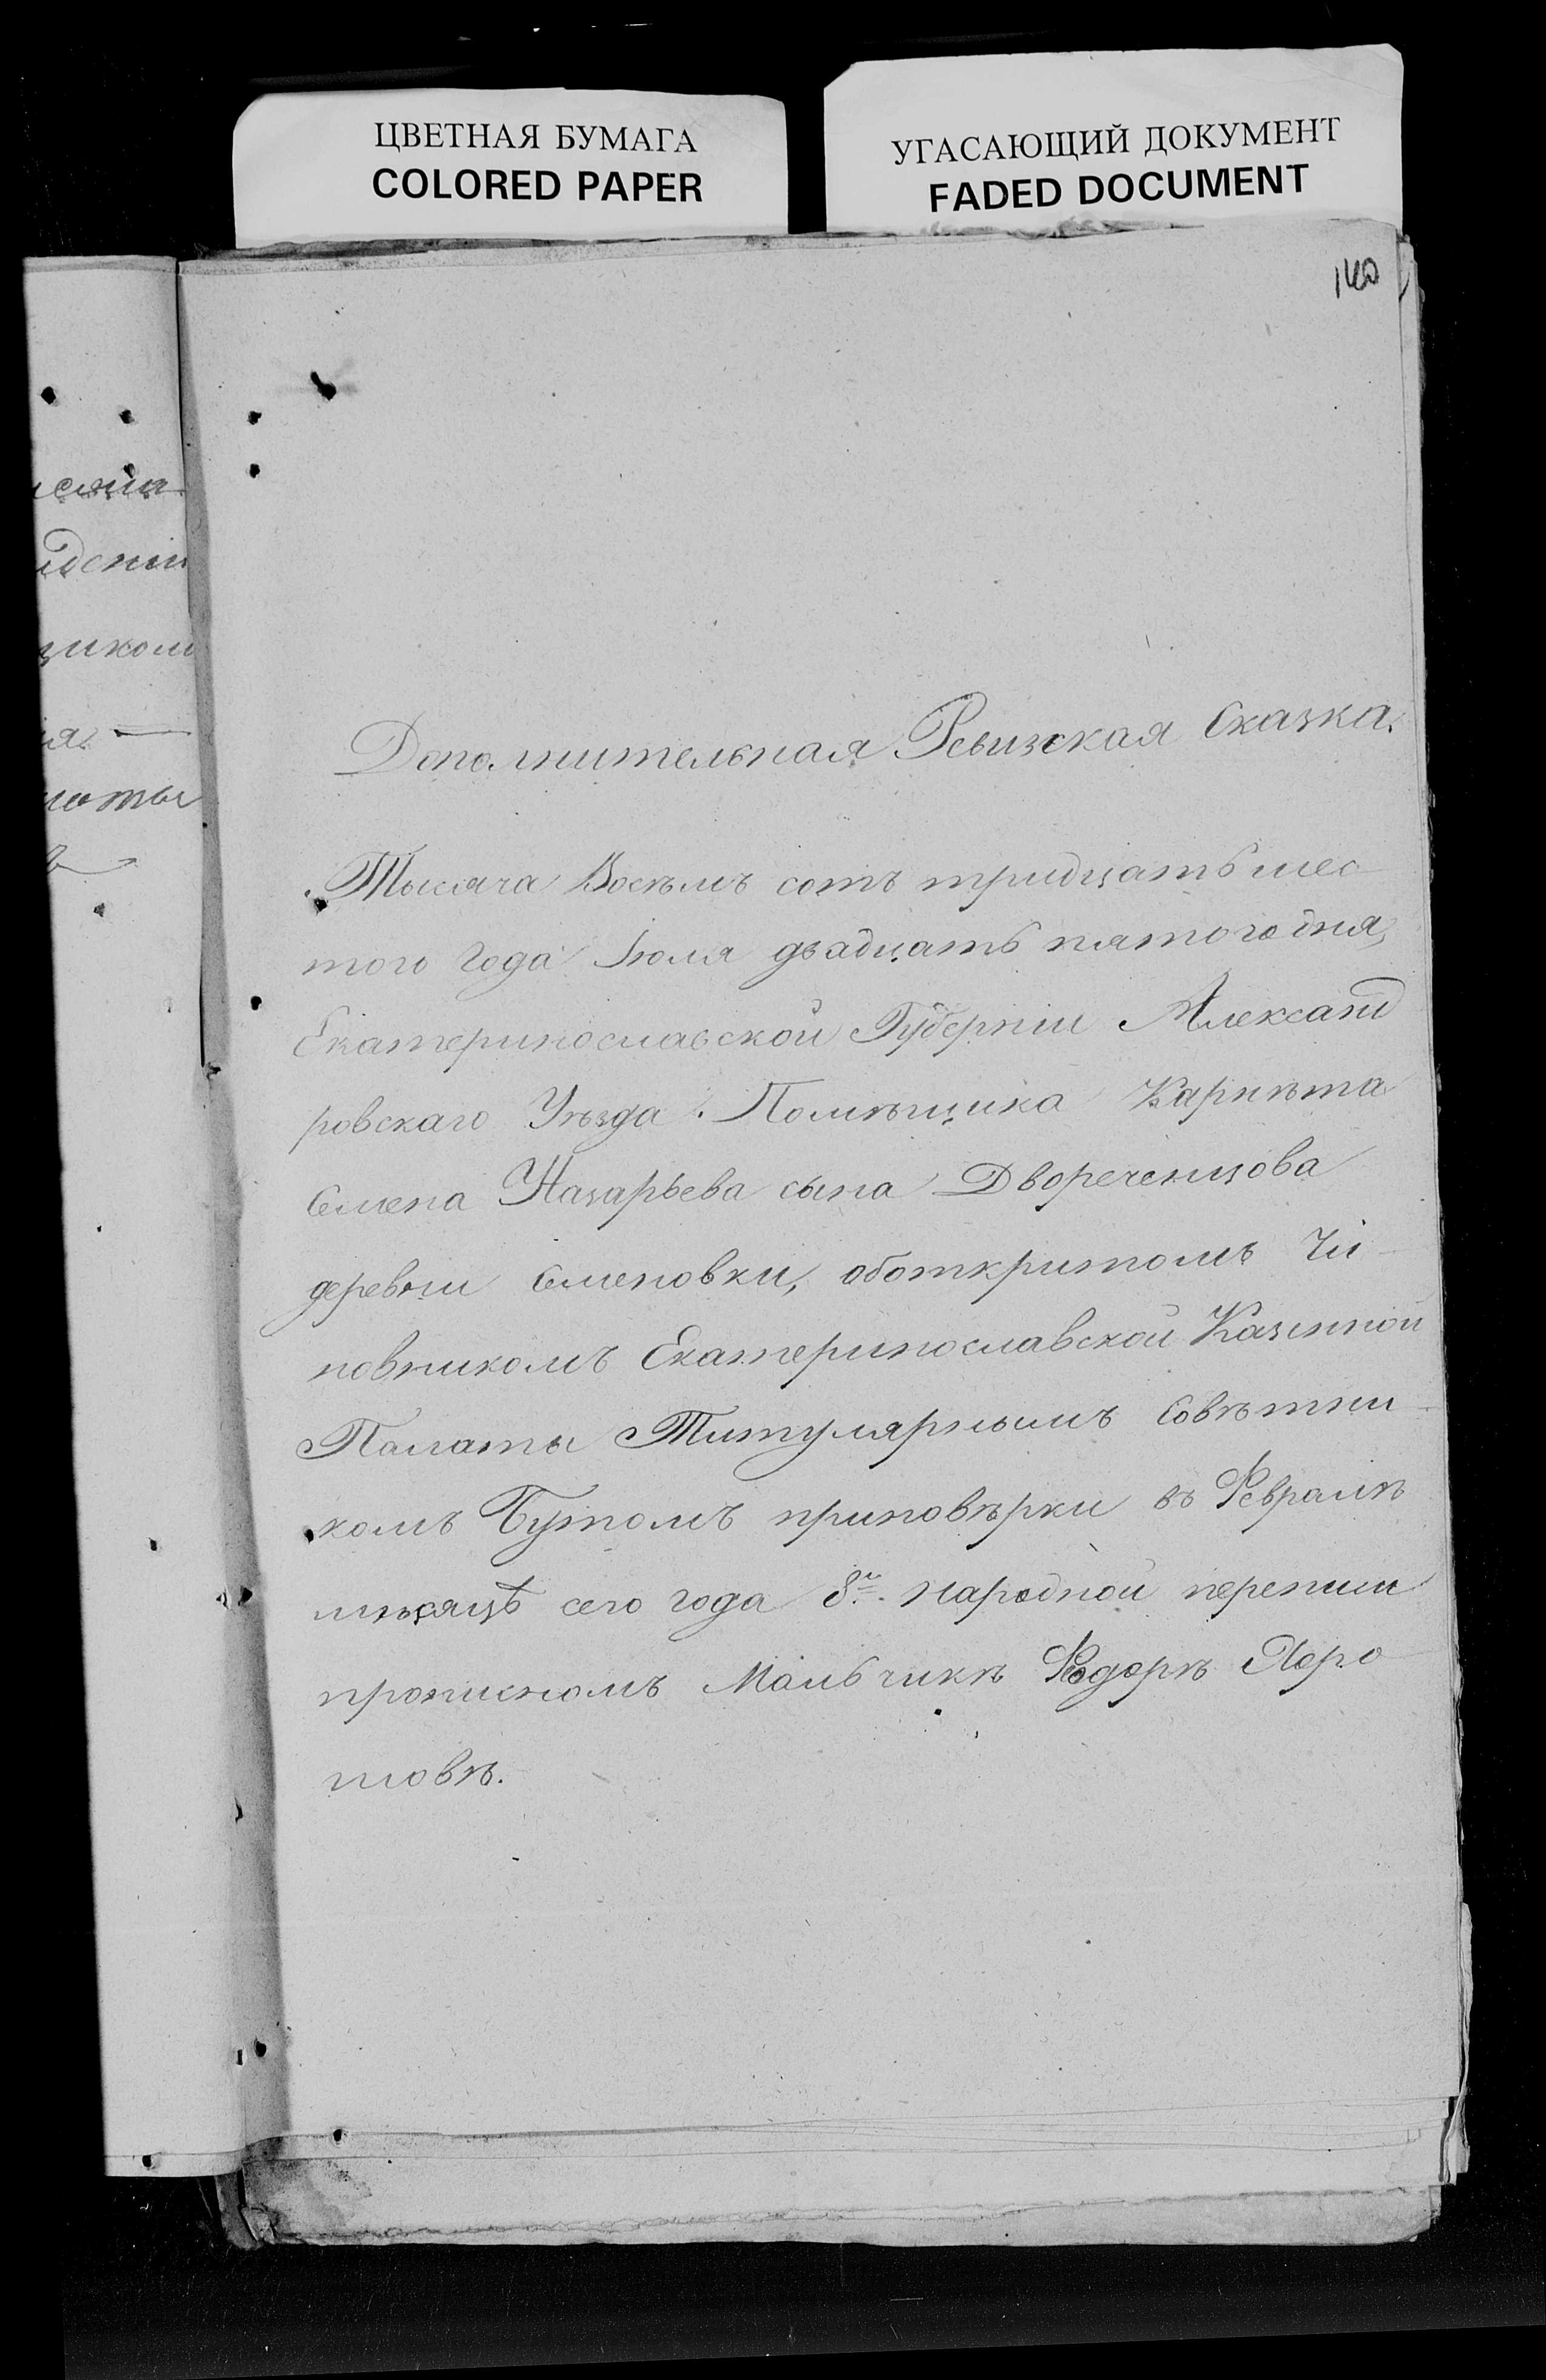 ЦВЕТНАЯ БУМАГА
COLORED PAPER
УГАСАЮЩИЙ ДОКУМЕНТ
FADED DOCUMENT
140
Дополнительная Ревизская Сказка.
Тысяча Восѣмъ сотъ тридцать шес
того года Іюля двадцать пятого дня,
Екатеринославской Губерніи Александ
ровскаго Уѣзда Помѣщика Карнѣта
Семена Назарьева сына Двореченцова
деревни Семеновки, оботкритомъ Чи-
новникомъ Екатеринославской Казенной
Палаты Титулярнымъ Совѣтни-
комъ Бутомъ приповѣрки въ Февралѣ
мѣсяцѣ сего года 8й народной переписи
прописномъ Мальчикѣ Федорѣ